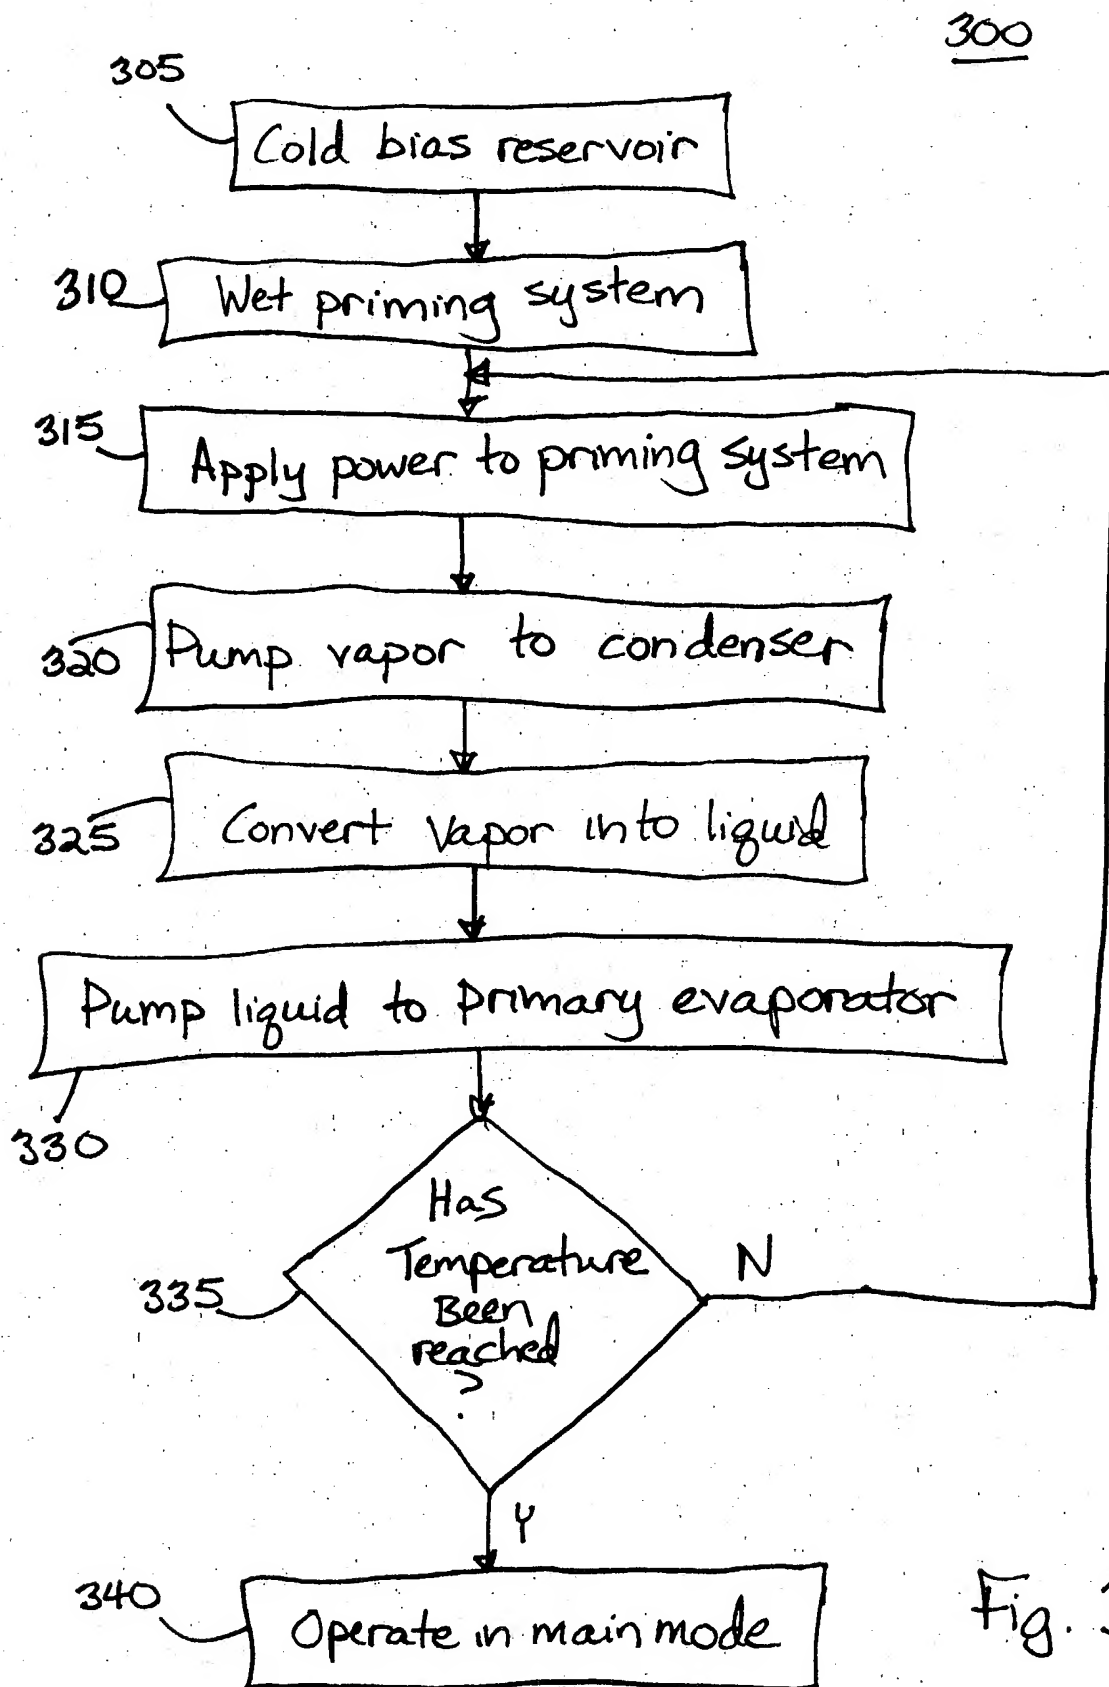 300
305
Cold bias reservoir
310
Wet priming system
315
Apply power to priming system
320
Pump vapor to condenser
325
Convert vapor into liquid
Pump liquid to primary evaporator
330
Has
Temperature
Been
reached
?
335
N
Y
340
Operate in main mode
Fig.